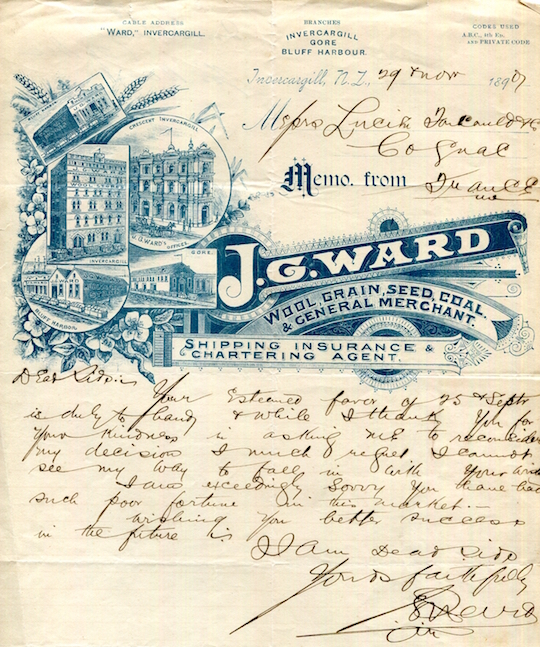 CABLE ADDRESS
"WARD," INVERCARGILL.
BRANCHES
INVERCARGILL
GORE
BLUFF HARBOUR.
CODES USED
A.B.C., 4th Ed.,
AND PRIVATE CODE
Invercargill, N.Z., 29 Nov 1897
Messrs Lucien Foucauld & Co
Cognac
Memo. from France
CRESCENT INVERCARGILL
J.G. WARD'S OFFICES.
INVERCARGILL
GORE.
WARD
BLUFF HARBOR.
J.G. WARD
WOOL, GRAIN, SEED, COAL,
& GENERAL MERCHANT.
SHIPPING INSURANCE &
CHARTERING AGENT.
Dear Sirs
Your Esteemed favor of 25 Septr
is duly to hand & while I thank you for
your kindness in asking me to reconsider
my decision I much regret I cannot
see my way to fall in with your
I am exceedingly sorry you have had
such poor fortune in this market.—
wishing you better success
in the future
I am Dear Sirs
Yours faithfully